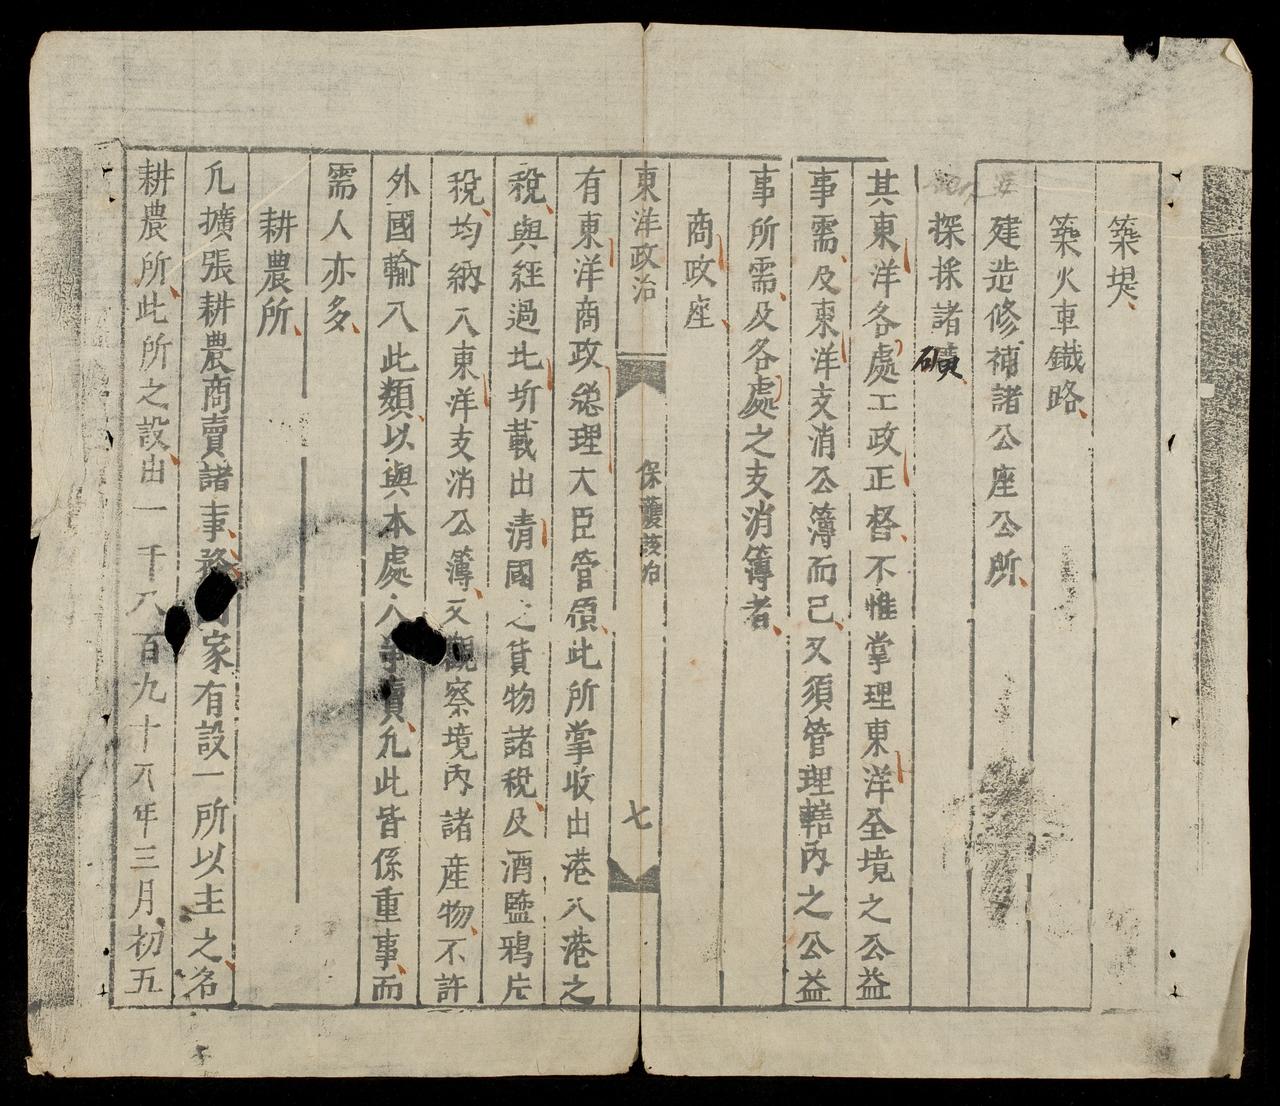 築堤
築火車鐵路
建造修補諸公座公所
探採諸礦
其東洋各處工政正督不惟掌理東洋全境之公益
事需及東洋支消公簿而已又須管理轄內之公益
事所需及各處之支消簿者
商政座
東洋政治 保護該治 七
有東洋商政總理大臣管領此所掌收出港入港之
稅與經過北圻載出清國之貨物諸稅及酒鹽鴉片
稅均納入東洋支消公簿又觀察境內諸産物不許
外國輸入此類以與本處人爭賣凢此皆係重事而
需人亦多
耕農所
凢擴張耕農商賣諸事務家有設一所以主之名
耕農所此所之設出一千八百九十八年三月初五